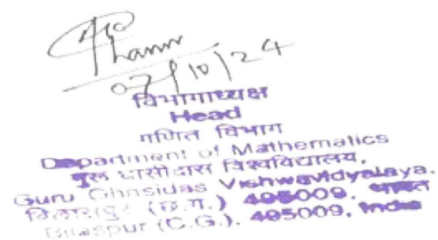 07/10/24
विभागाध्यक्ष
Head
गणित विभाग
Department of Mathematics
गुरू घासीदास विश्वविद्यालय,
Guru Ghasidas Vishwavidyalaya.
बिलासपुर (छ.ग.) 495009, भारत
Bilaspur (C.G.) 495009, India